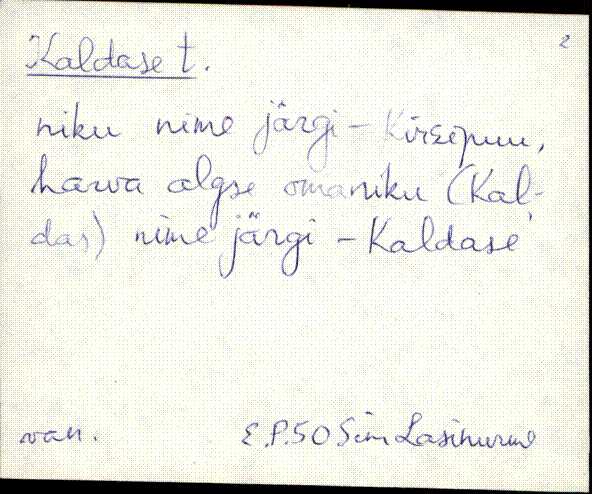 Kaldase t. 2
niku nime järgi - Kirsipuu,
harva algse omaniku (Kal-
das) nime järgi - Kaldase
van. E.P.50 Sim Lasinurme